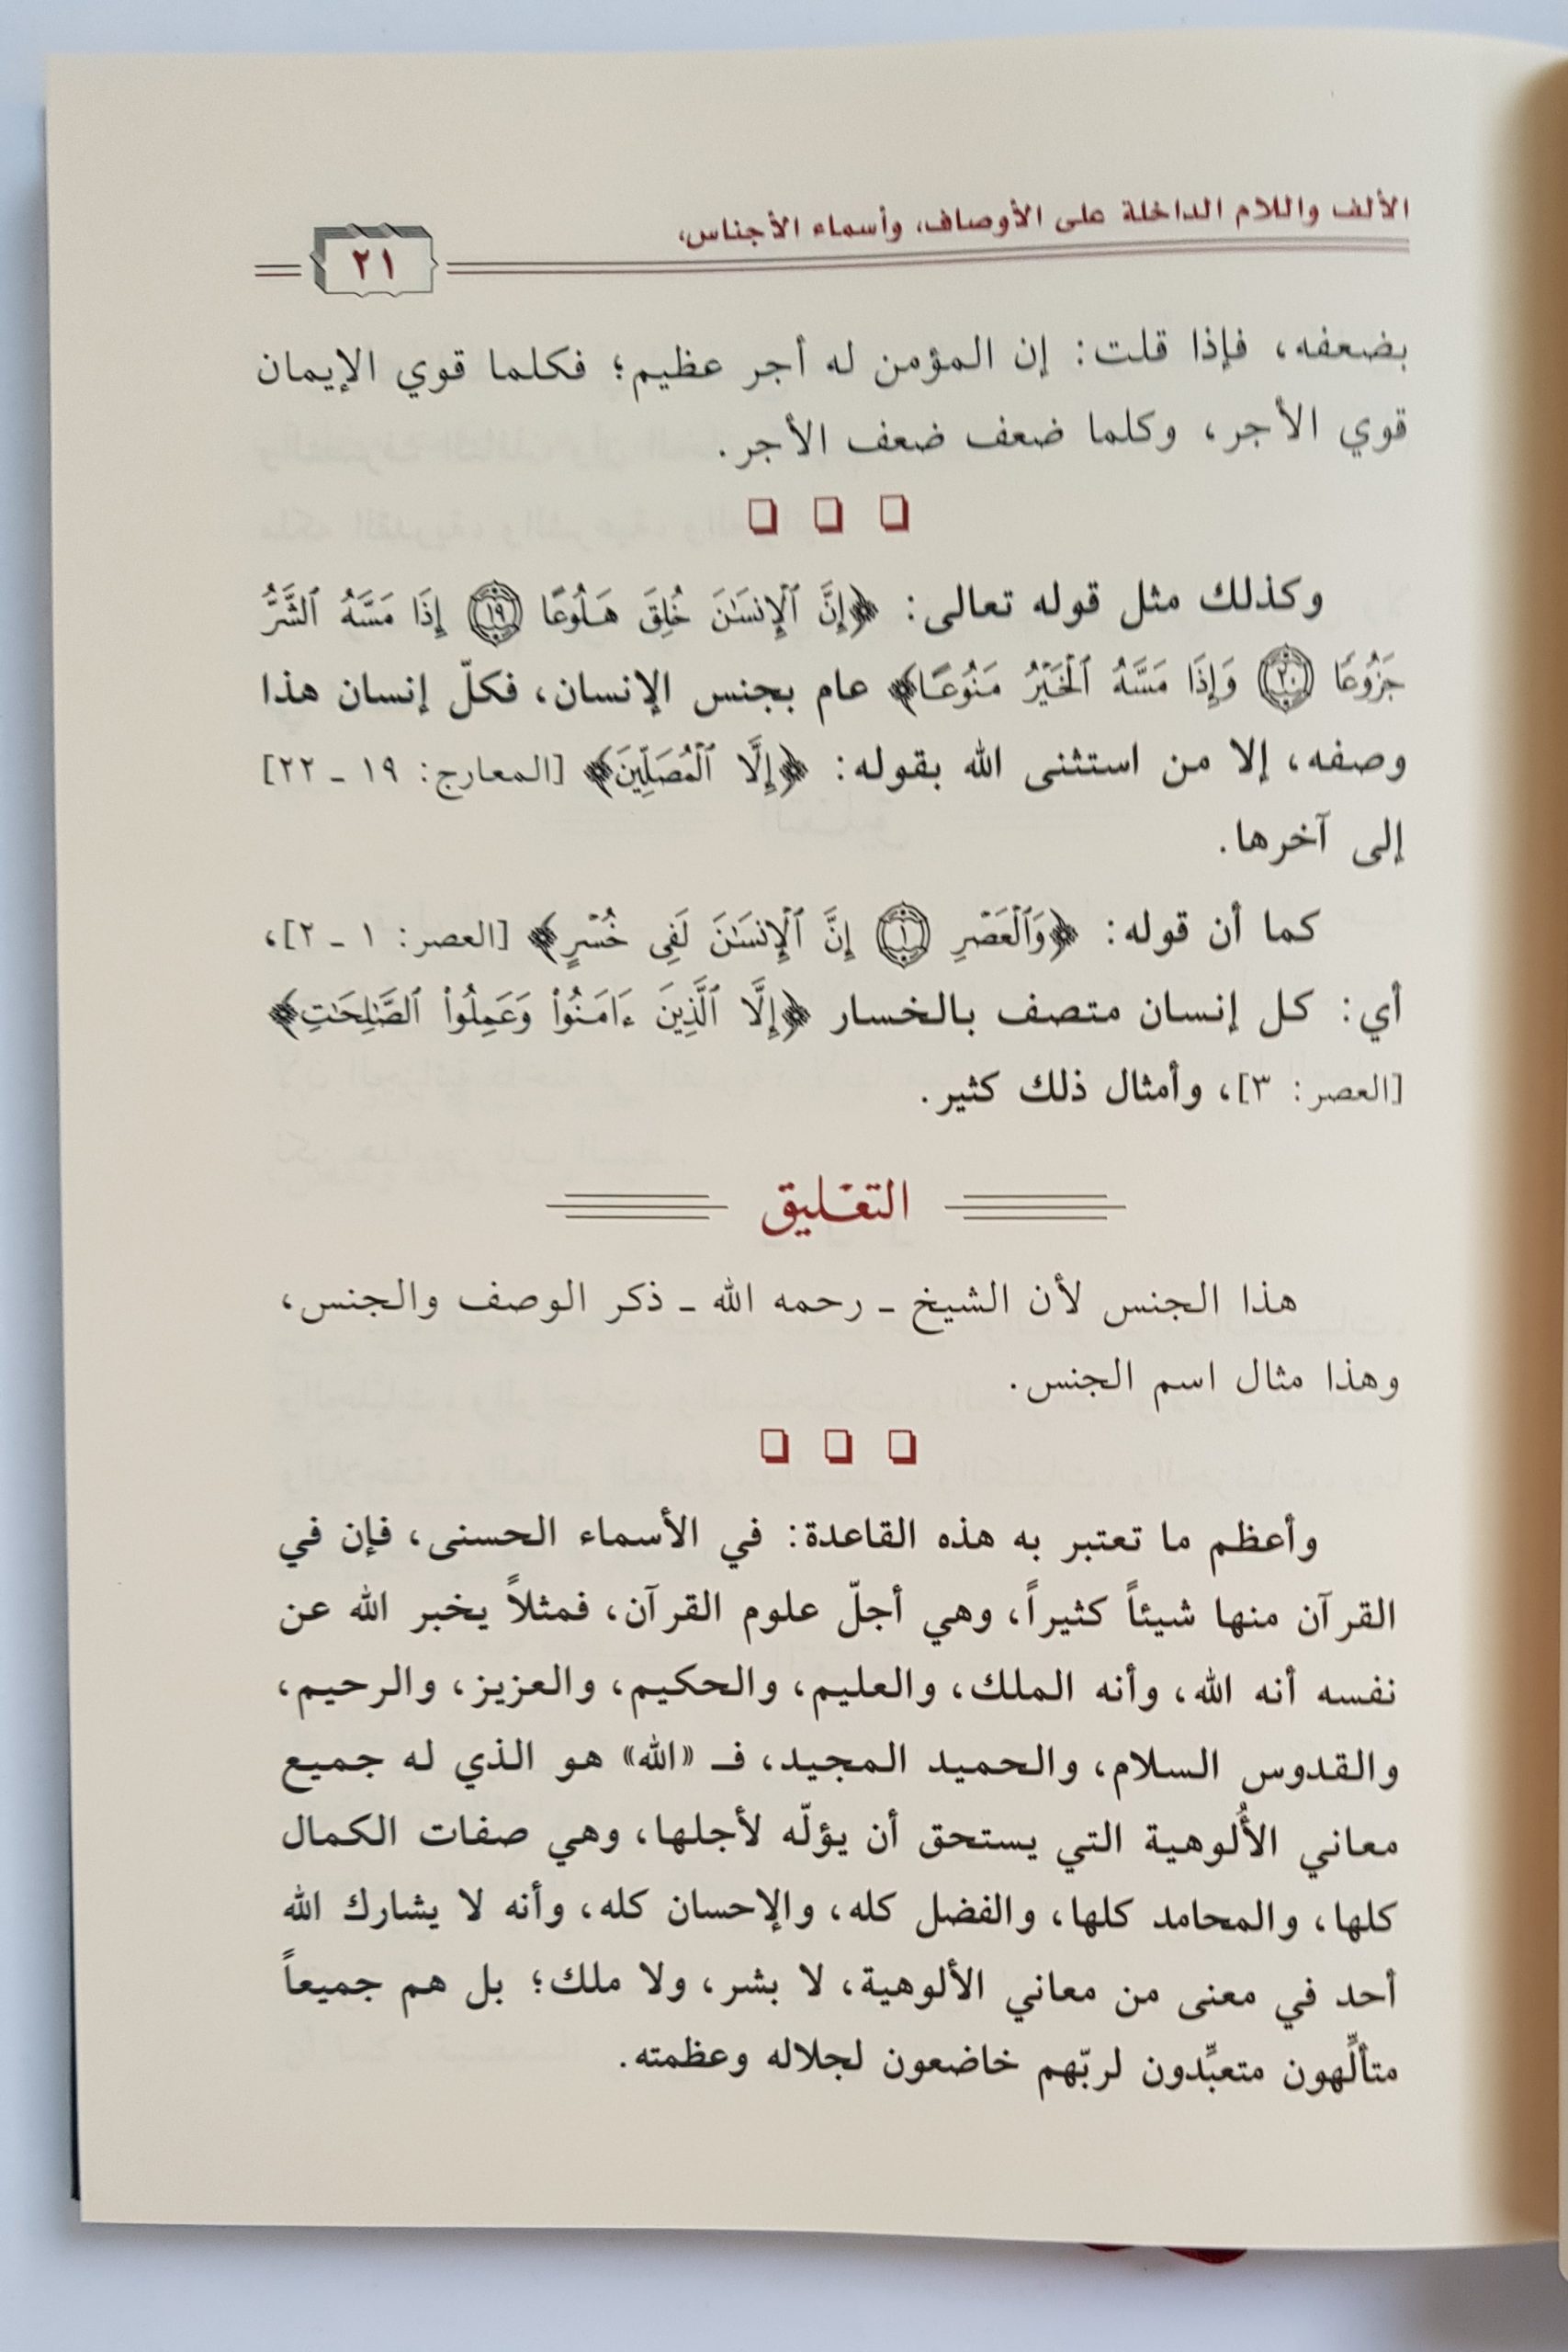 الألف واللام الداخلة على الأوصاف، وأسماء الأجناس،
٢١
بضعفه، فإذا قلت: إن المؤمن له أجر عظيم؛ فكلما قوي الإيمان
قوي الأجر، وكلما ضعف ضعف الأجر.
وكذلك مثل قوله تعالى: ﴿إِنَّ ٱلْإِنسَـٰنَ خُلِقَ هَلُوعًا ١٩ إِذَا مَسَّهُ ٱلشَّرُّ
جَزُوعًا ٢٠ وَإِذَا مَسَّهُ ٱلْخَيْرُ مَنُوعًا﴾ عام بجنس الإنسان، فكلّ إنسان هذا
وصفه، إلا من استثنى الله بقوله: ﴿إِلَّا ٱلْمُصَلِّينَ﴾ [المعارج: ١٩ ـ ٢٢]
إلى آخرها.
كما أن قوله: ﴿وَٱلْعَصْرِ ١ إِنَّ ٱلْإِنسَـٰنَ لَفِى خُسْرٍ﴾ [العصر: ١ ـ ٢]،
أي: كل إنسان متصف بالخسار ﴿إِلَّا ٱلَّذِينَ ءَامَنُوا۟ وَعَمِلُوا۟ ٱلصَّـٰلِحَـٰتِ﴾
[العصر: ٣]، وأمثال ذلك كثير.
التعليق
هذا الجنس لأن الشيخ ـ رحمه الله ـ ذكر الوصف والجنس،
وهذا مثال اسم الجنس.
وأعظم ما تعتبر به هذه القاعدة: في الأسماء الحسنى، فإن في
القرآن منها شيئاً كثيراً، وهي أجلّ علوم القرآن، فمثلاً يخبر الله عن
نفسه أنه الله، وأنه الملك، والعليم، والحكيم، والعزيز، والرحيم،
والقدوس السلام، والحميد المجيد، فـ «الله» هو الذي له جميع
معاني الأُلوهية التي يستحق أن يؤلّه لأجلها، وهي صفات الكمال
كلها، والمحامد كلها، والفضل كله، والإحسان كله، وأنه لا يشارك الله
أحد في معنى من معاني الألوهية، لا بشر، ولا ملك؛ بل هم جميعاً
متألِّهون متعبِّدون لربّهم خاضعون لجلاله وعظمته.